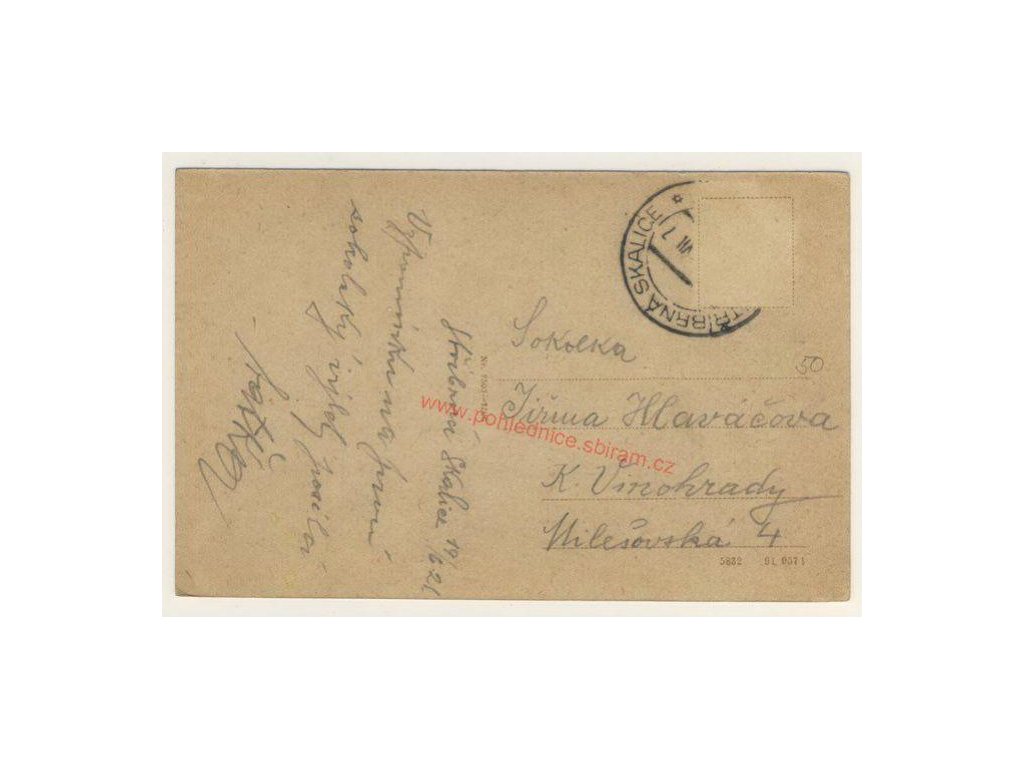 Stříbrná Skalice 19/6 21
Vzpomínku na první
sokolský výlet posílá
STŘÍBRNÁ SKALICE
Sokolka
50
Jiřina Hlaváčova
K. Vinohrady
Milešovská 4
5832
www.pohlednice.sbiram.cz